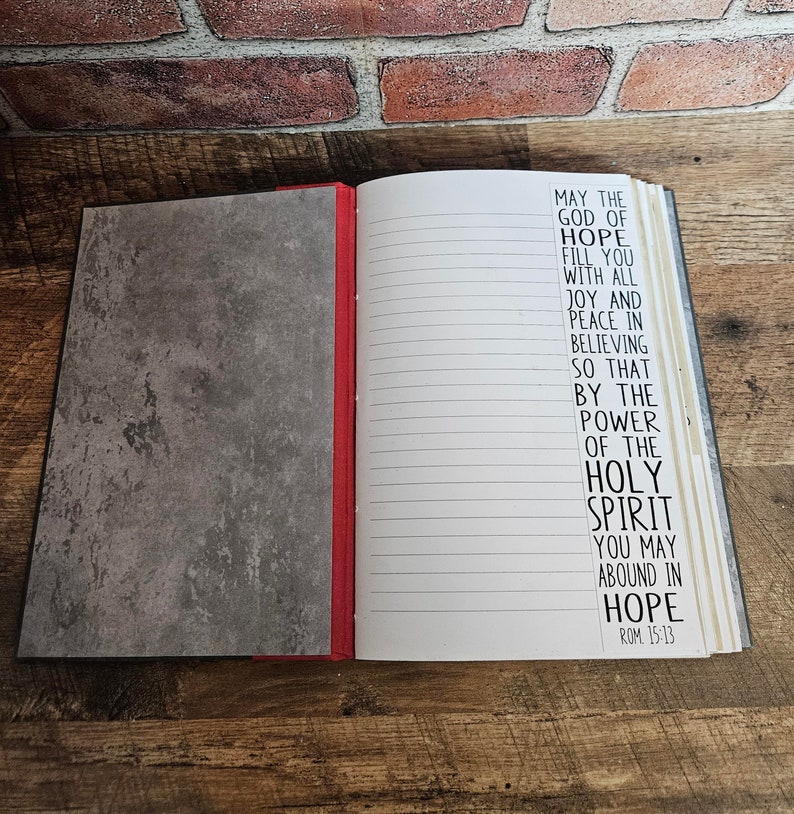 MAY THE
GOD OF
HOPE
FILL YOU
WITH ALL
JOY AND
PEACE IN
BELIEVING
SO THAT
BY THE
POWER
OF THE
HOLY
SPIRIT
YOU MAY
ABOUND IN
HOPE
ROM. 15:13